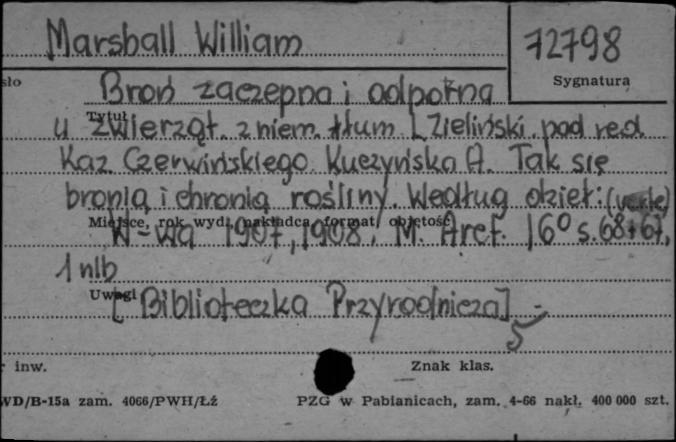 Marshall William
72798
sło
Sygnatura
Broń zaczepna i odporna
Tytuł
u zwierząt. z niem. tłum L Zieliński pod red.
Kaz. Czerwińskiego. Kuczyńska A. Tak się
bronią i chronią rośliny. Według dzieł: (verte)
Miejsce, rok wyd., nakładca, format, objętość
W-wa 1907, 1908, M. Arct. 16° s. 68+67,
1 nlb
Uwagi
[Biblioteczka Przyrodnicza] -
5
r inw.
Znak klas.
WD/B-15a zam. 4066/PWH/Łź
PZG w Pabianicach, zam. 4-66 nakł. 400 000 szt.